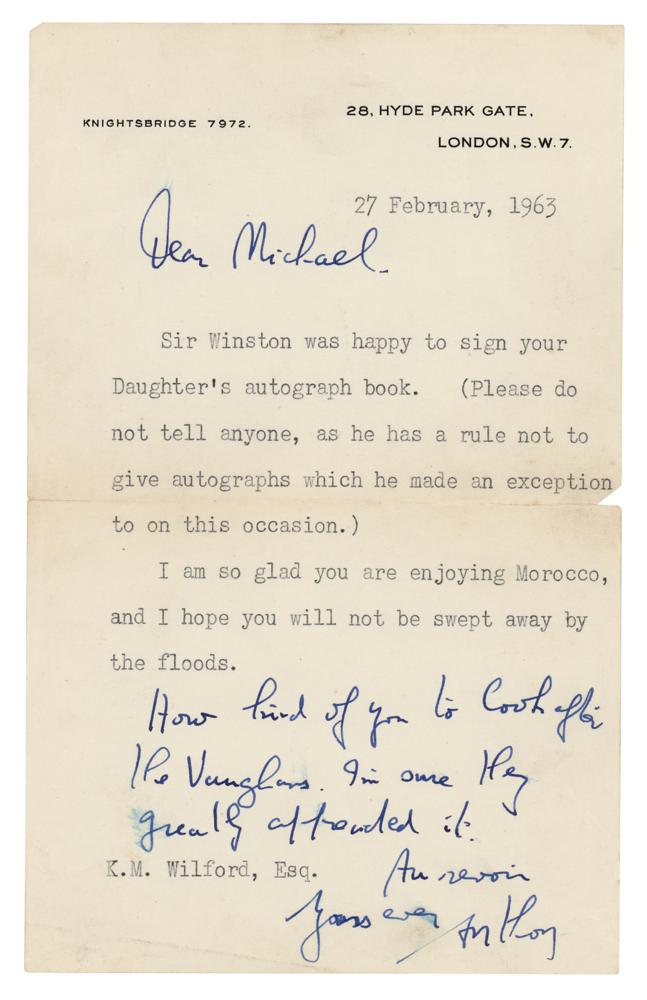 KNIGHTSBRIDGE 7972.
28, HYDE PARK GATE,
LONDON, S.W.7.
27 February, 1963
Dear Michael.
Sir Winston was happy to sign your
Daughter's autograph book. (Please do
not tell anyone, as he has a rule not to
give autographs which he made an exception
to on this occasion.)
I am so glad you are enjoying Morocco,
and I hope you will not be swept away by
the floods.
How kind of you to look after
the Vaughans. I'm sure they
greatly appreciated it.
K.M. Wilford, Esq.
Au revoir
Yours ever Anthony